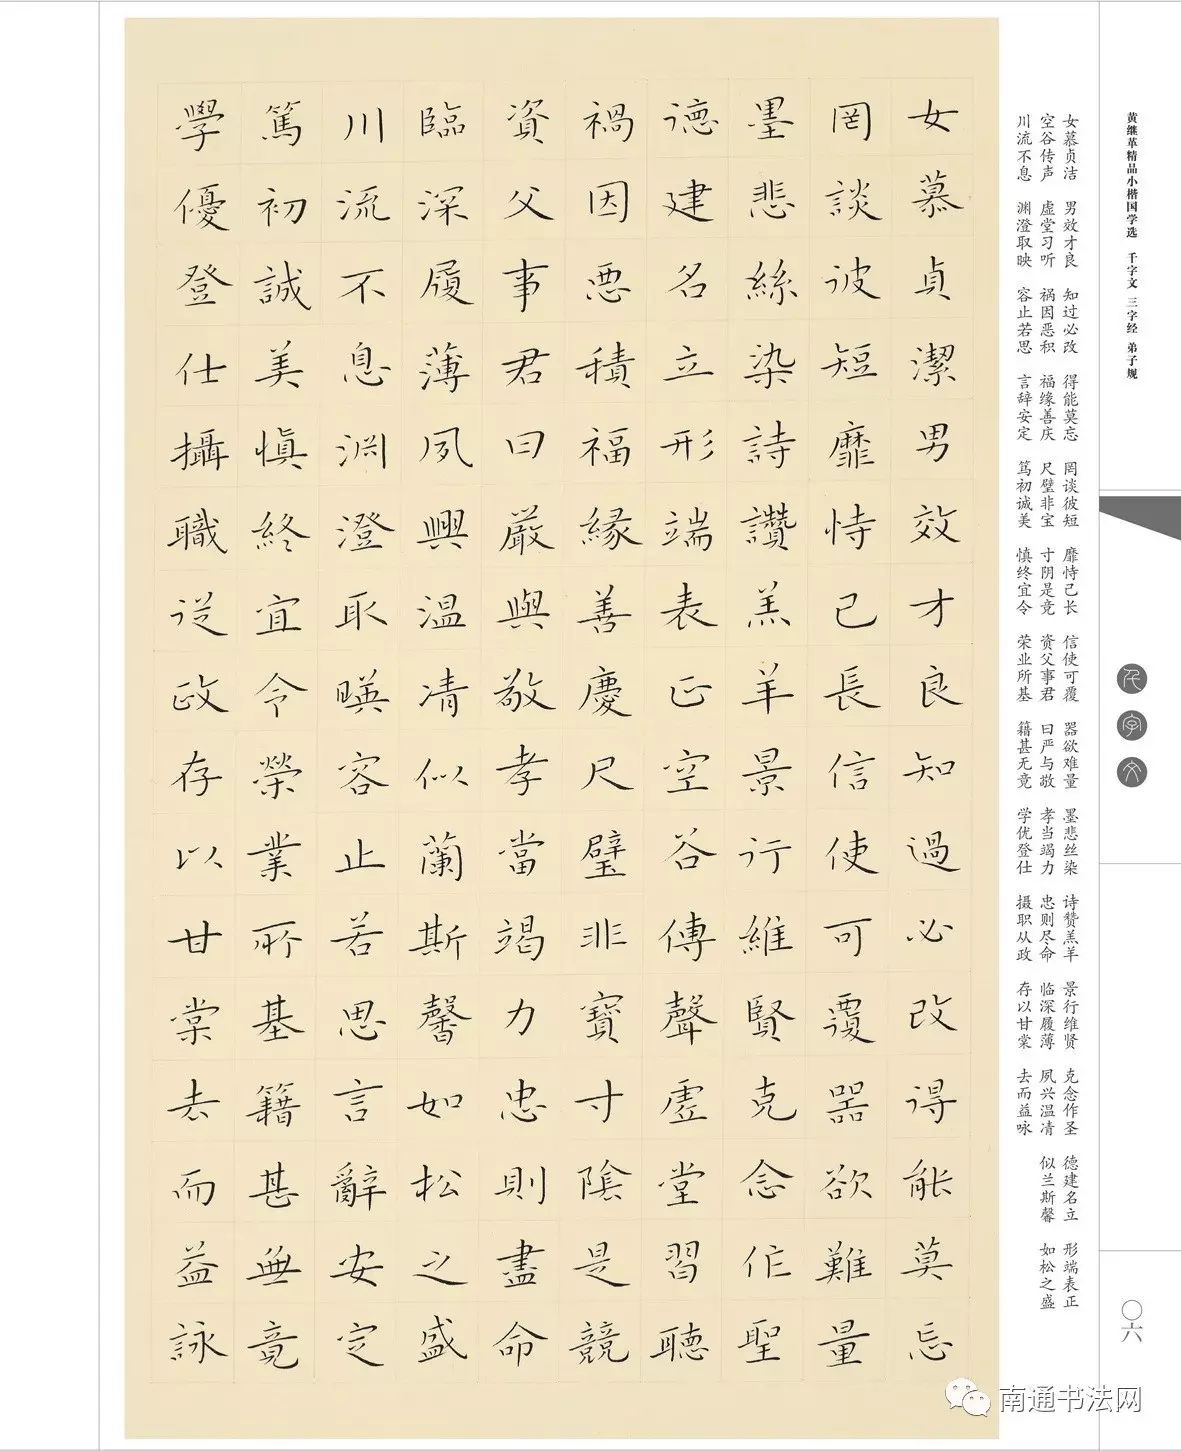 黄继革精品小楷国学选 千字文 三字经 弟子规
千字文
〇六
女慕贞洁 男效才良 知过必改 得能莫忘 罔谈彼短 靡恃己长 信使可覆 器欲难量 墨悲丝染 诗赞羔羊 景行维贤 克念作圣 德建名立 形端表正
空谷传声 虚堂习听 祸因恶积 福缘善庆 尺璧非宝 寸阴是竞 资父事君 曰严与敬 孝当竭力 忠则尽命 临深履薄 夙兴温凊 似兰斯馨 如松之盛
川流不息 渊澄取映 容止若思 言辞安定 笃初诚美 慎终宜令 荣业所基 籍甚无竟 学优登仕 摄职从政 存以甘棠 去而益咏
女慕貞潔男效才良知過必改得能莫忘
罔談彼短靡恃己長信使可覆器欲難量
墨悲絲染詩讚羔羊景行維賢克念作聖
德建名立形端表正空谷傳聲虛堂習聽
禍因惡積福緣善慶尺璧非寶寸陰是競
資父事君曰嚴與敬孝當竭力忠則盡命
臨深履薄夙興温凊似蘭斯馨如松之盛
川流不息淵澄取暎容止若思言辭安定
篤初誠美慎終宜令榮業所基籍甚無竟
學優登仕攝職從政存以甘棠去而益詠
南通书法网